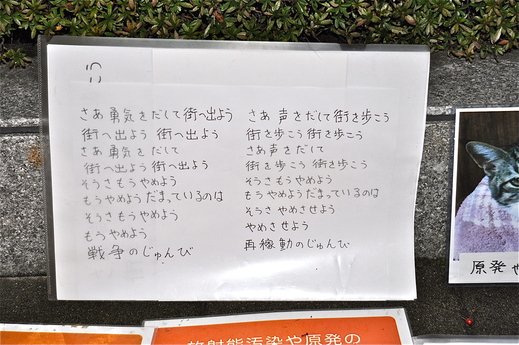 さあ 勇気をだして街へ出よう
街へ出よう 街へ出よう
さあ勇気をだして
街へ出よう街へ出よう
そうさもうやめよう
もうやめようだまっているのは
そうさもうやめよう
もうやめよう
戦争のじゅんび
さあ 声をだして街を歩こう
街を歩こう街を歩こう
さあ声をだして
街を歩こう 街を歩こう
そうさもうやめよう
もうやめようだまっているのは
そうさ やめさせよう
やめさせよう
再稼動のじゅんび
原発や
放射能汚染や原発の